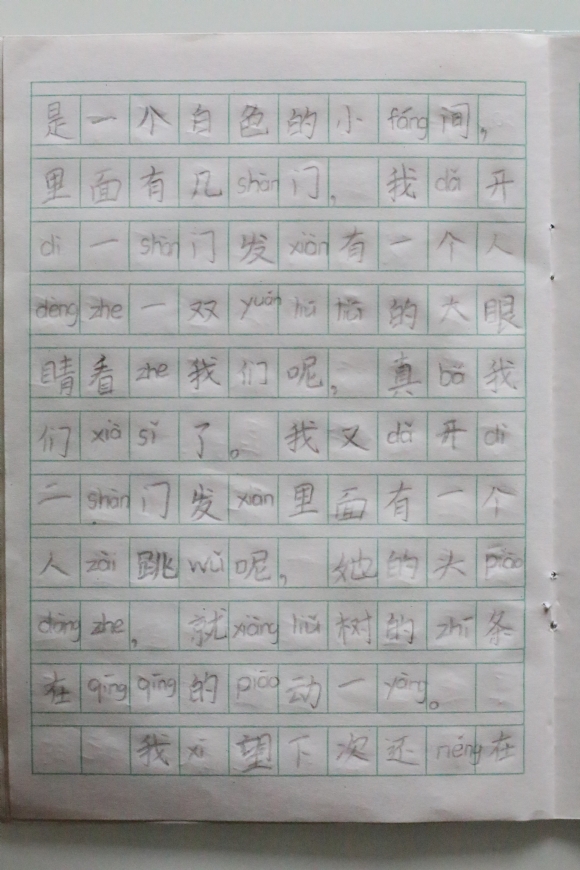 是一个白色的小fáng间，
里面有几shàn门，我dǎ开
dì一shàn门发xiàn有一个人
dèng zhe一双yuán liū liū的大眼
睛看zhe我们呢，真bǎ我
们xià sǐ了。我又dǎ开dì
二shàn门发xiàn里面有一个
人zài跳wǔ呢，她的头piāo
dàng zhe，就xiàng liǔ树的zhī条
在qīng qīng的piāo动一yàng。
我xī望下次还néng在